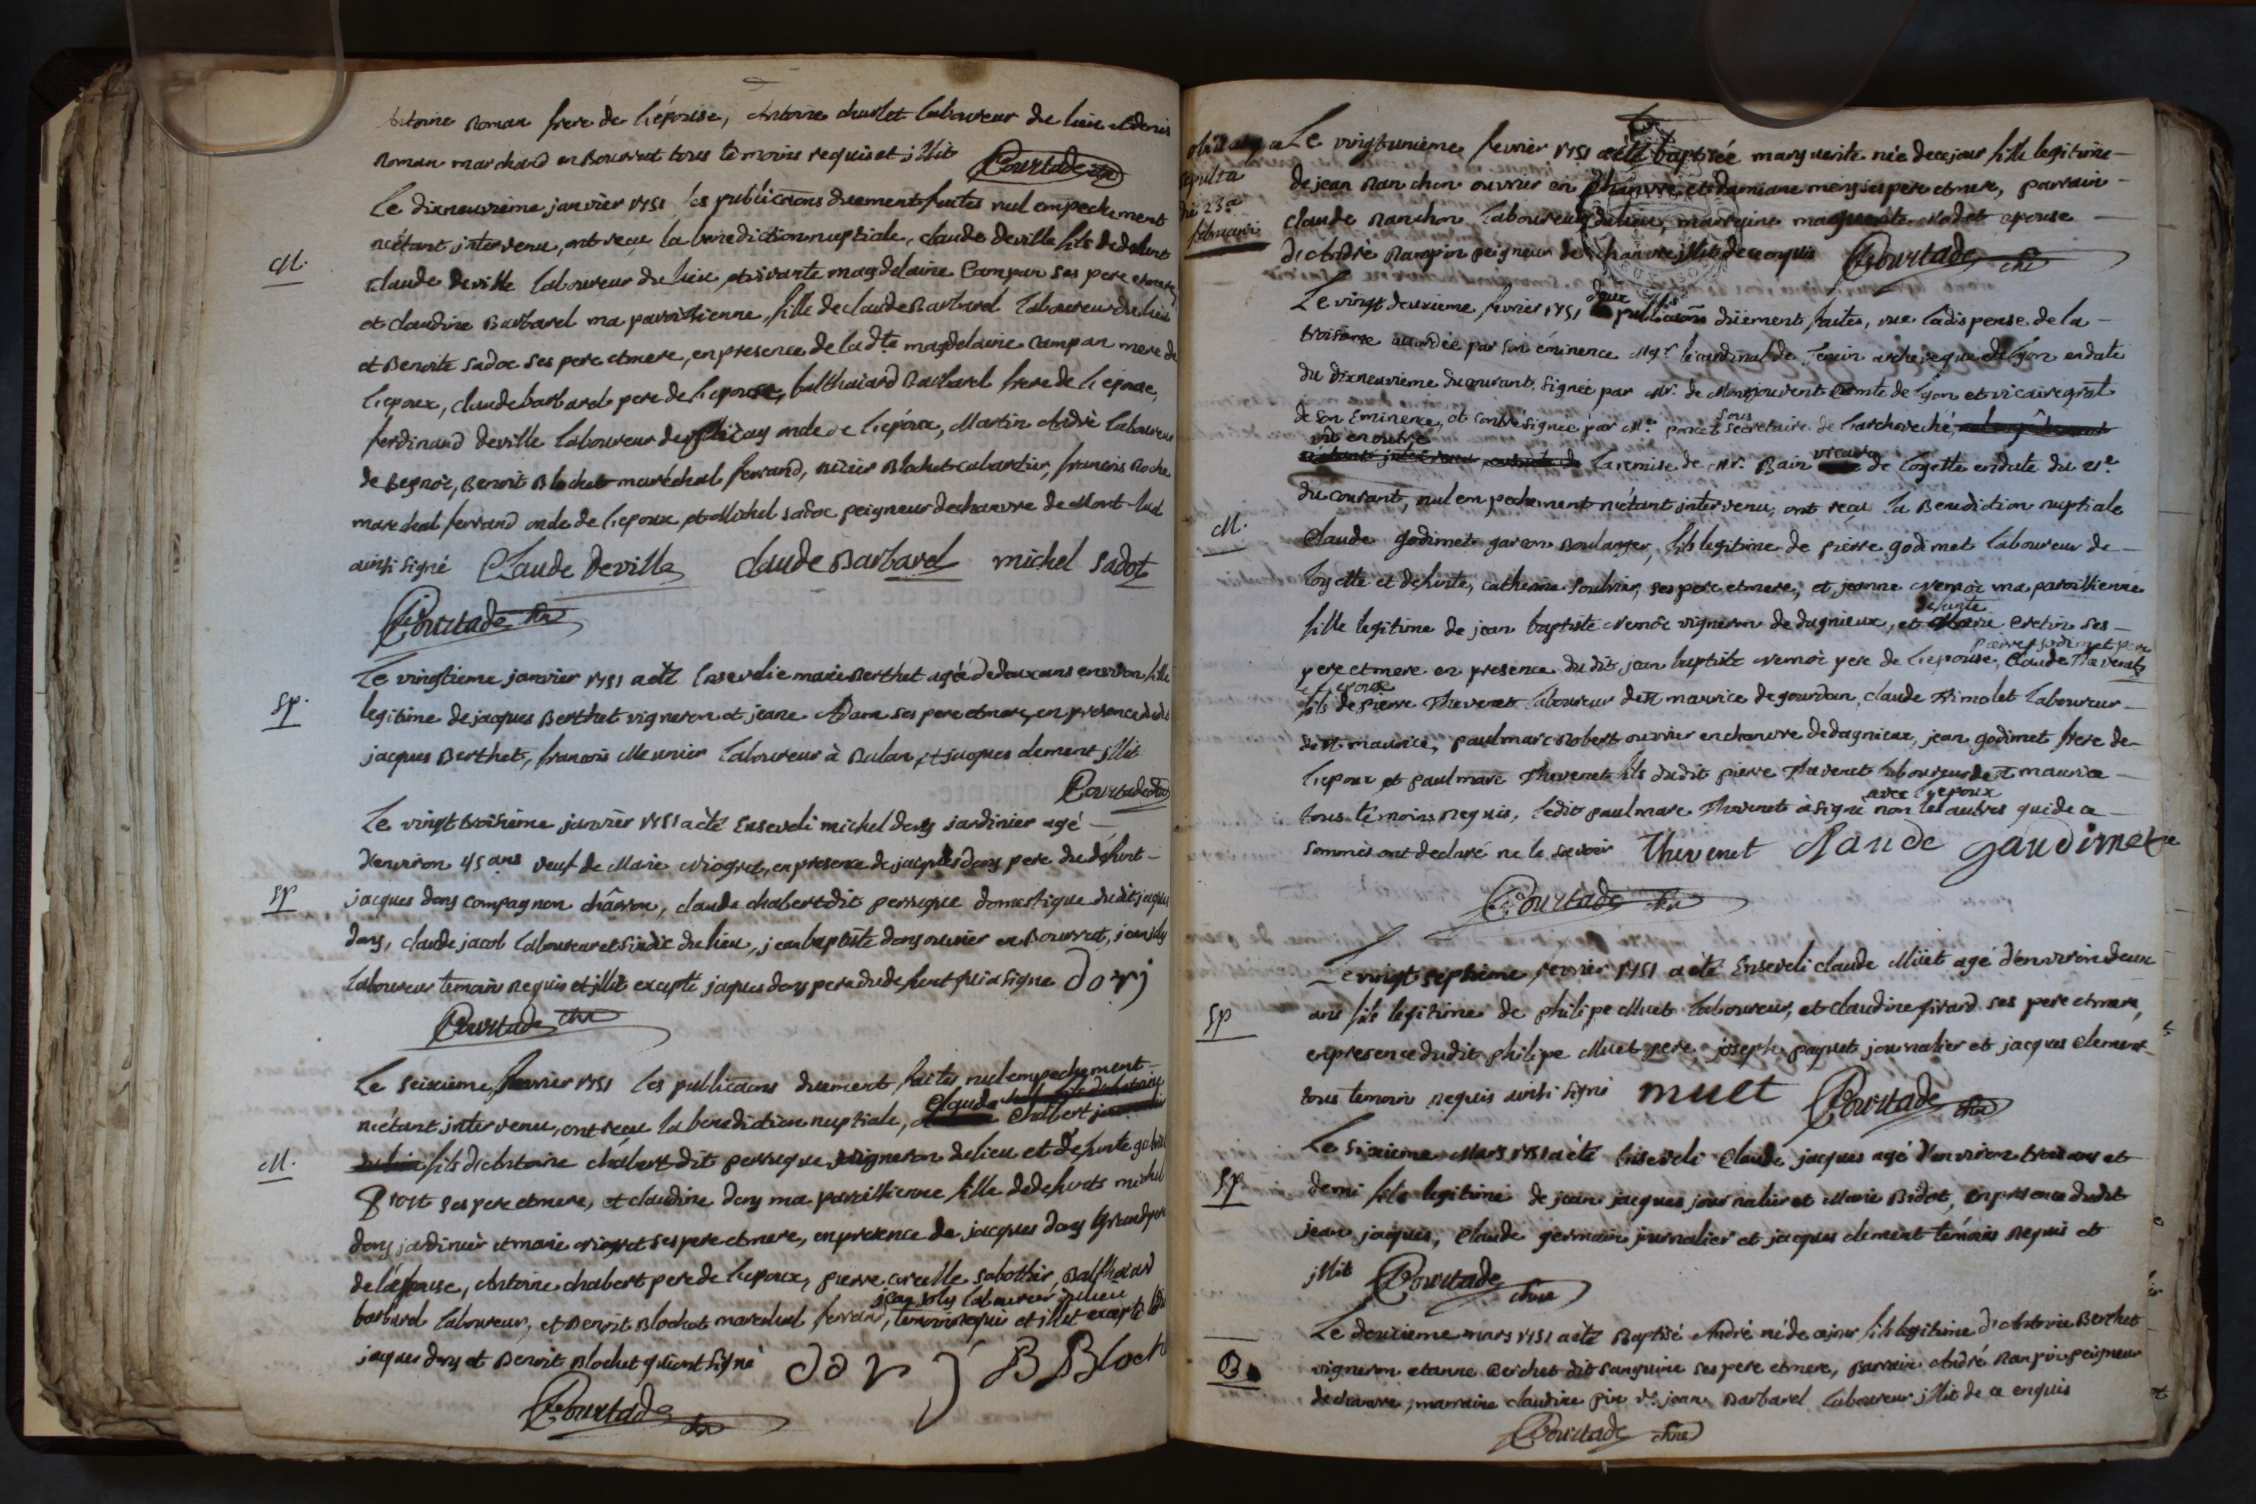 Antoine Roman frere de l'épouse, Antoine charlet laboureur du lieu et denis
Roman marchand en Bourrat tous témoins requis et illit Courtade curé
Le dixneuvième janvier 1751 les publicaõns duement faites nul empechement
M. n'étant intervenu, ont reçu la benediction nuptiale, claude deville fils de defunt
claude deville laboureur du lieu, et vivante magdelaine Campan ses pere et mere,
et claudine Barbarel ma paroissienne, fille de claude Barbarel laboureur du lieu
et Benoite sadoc ses pere et mere, en presence de lad.te magdelaine Campan mere de
l'epoux, claude barbarel pere de l'epouse, balthazard Barbarel frere de l'epouse,
ferdinand deville laboureur de oncle de l'epoux, Martin André laboureur
de Benoit Blochet maréchal ferrand, nizier Blochet cabartier, françois Roche
marechal ferrand oncle de l'epoux et Michel sadoc peigneur de chanvre de Mont-luel
ainsi signé Claude Deville claude Barbarel michel sadot
Courtade curé
Le vingtieme janvier 1751 a été Ensevelie marie Berthet agée de deux ans environ fille
Sp. legitime de jacques Berthet vigneron et jeane Adam ses pere et mere, en presence dudit
jacques Berthet, francois Meunier laboureur à Balan, et jacques clement illit
Courtade curé
Le vingt troisieme janvier 1751 a été Enseveli michel dory jardinier agé
d'environ 45 ans veuf de Marie Miogret, en presence de jacques dory pere du defunt
Sp jacques dory compagnon chârron, claude chabert dit perruque domestique dudit jacques
dory, claude jacob laboureur et sindic du lieu, jean baptiste dory ouvrier en Bourrat, jean joly
laboureur temoins requis et illit excepté jaques dory pere du defunt qui a signe dorÿ
Courtade curé
Le seizieme fevrier 1751 les publicaõns duement faites nul empechement
n'étant intervenu, ont reçu la benediction nuptiale, Claude Chalbert
M. fils d'Antoine chabert dit perruque vigneron du lieu et defunte
prost ses pere et mere, et claudine dory ma paroissienne fille de defunts michel
dory jardinier et marie miogret ses pere et mere, en presence de jacques dory grand pere
de l'épouse, Antoine chabert pere de l'epoux, pierre sabottier, Balthazard
jean joly laboureur du lieu
barbarel laboureur, et Benoit Blochet marechal ferrand, temoins requis et illit excepté
jaques dory et Benoit Blochet qui ont signé dorÿ B Bloch
Courtade curé
sepulta
die 23a
februarii
Le vingtunième fevrier 1751 a été baptisée marguerite née de ce jour fille legitime
de jean Ranchon ouvrier en chanvre et damiane meny ses pere et mere, parrain
claude Ranchon laboureur du lieu, marraine marguerite Nadot epouse
d'André Rampon peigneur de chanvre illit de ce enquis Courtade curé
Le vingt deuxieme fevrier 1751 deux publicaõns duement faites, vue la dispense de la
troisieme accordée par son éminence Mgr le cardinal de Tencin archeveque de Lyon en date
du dixneuvième du courant, signée par Mr. de Montjouvent Comte de Lyon et vicaire gñral
de son Eminence, et contresignée par Me poncet sous secretaire de l'archeveché,
vû en outre la remise de Mr. Bain vicaire de loyette en date du 21e
du courant, nul empechement n'étant intervenu, ont reçu la Benediction nuptiale
M. Claude godimet garçon Boulanger, fils legitime de pierre godimet laboureur de
loyette et defunte, catherine soulvier, ses pere et mere, et jeanne Nemoz ma paroissienne
fille legitime de jean baptiste Nemoz vigneron de dagnieux, et defunte cretin ses
pere et mere en presence dudit jean baptiste Nemoz pere de l'epouse, pierre godimet pere
de l'epoux Claude Thevenet
fils de pierre Thevenet laboureur de st maurice de gourdan, claude Trimolet laboureur
de st maurice, paul marc Robert ouvrier en chanvre de dagnieux, jean godimet frere de
l'epoux et paul marc Thevenet fils dudit pierre Thevenet laboureur de st maurice
tous témoins requis, ledit paul marc Thevenet a signé avec l'epoux non les autres qui de ce
sommés ont declaré ne le savoir Thevenet Claude gaudimet
Courtade curé
Le vingt septieme fevrier 1751 a été Enseveli claude Muet agé d'environ deux
Sp ans fils legitime de philipe Muet laboureur, et claudine girard ses pere et mere,
en presence dudit philipe Muet pere, joseph paquet journalier et jacques Clement
tous temoins requis ainsi signé muet Courtade curé
Le sixieme Mars 1751 a été Enseveli Claude jacques agé d'environ trois ans et
Sp demi fils legitime de jean jacques journalier et Marie Bidot, en presence dudit
jean jacques, Claude germain journalier et jacques clement témoins requis et
illit Courtade curé
Le douzieme mars 1751 a été Baptisé André né de ce jour fils legitime d'Antoine Berthet
B vigneron et anne Berchet dit sanguine ses pere et mere, Parrain André Ranpon peigneur
de chanvre, marraine claudine pin de jean Barbarel laboureur illit de ce enquis
Courtade curé